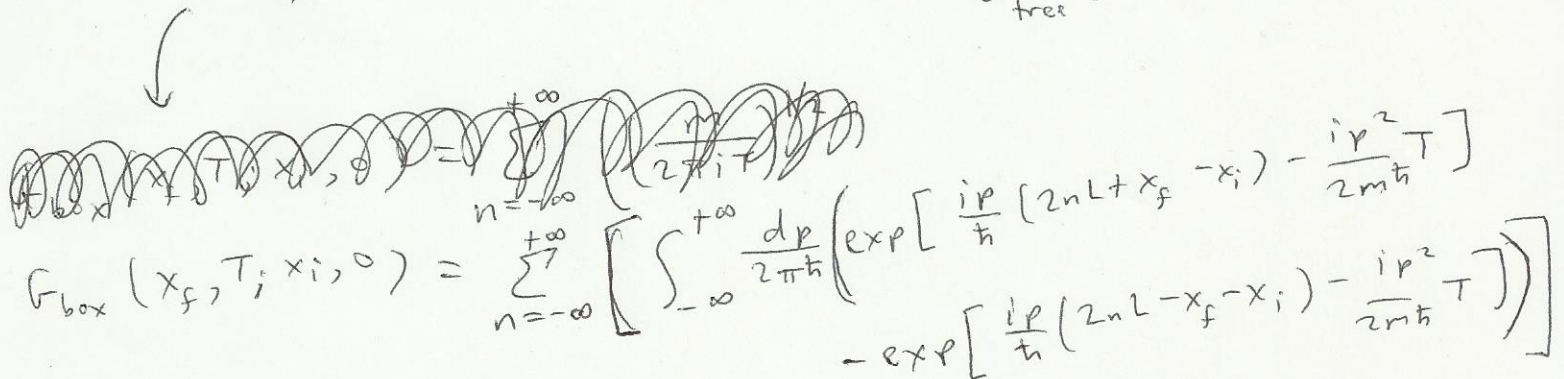 free
G_box (x_f, T; x_i, 0) = ∑_{n=-∞}^{+∞} [ ∫_{-∞}^{+∞} dp/2πħ ( exp[ ip/ħ (2nL + x_f - x_i) - ip²/2mħ T ]
- exp[ ip/ħ (2nL - x_f - x_i) - ip²/2mħ T ] ) ]